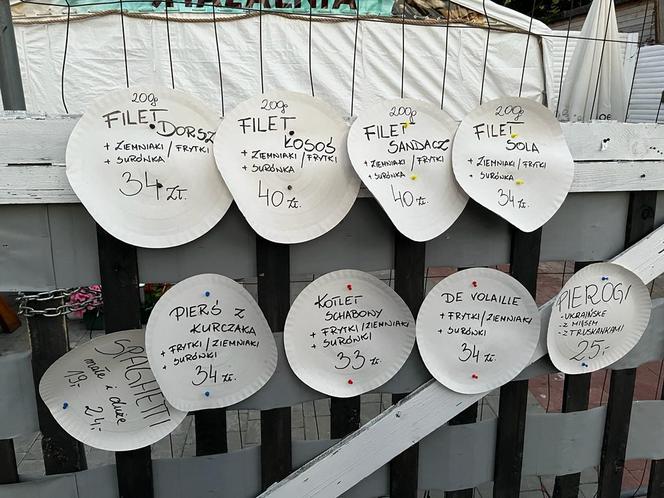 200g
FILET
DORSZ
+ ZIEMNIAKI/FRYTKI
+ SURÓWKA
34 zł.
200g
FILET
ŁOSOŚ
+ ZIEMNIAKI/FRYTKI
+ SURÓWKA
40 zł.
200g
FILET
SANDACZ
+ ZIEMNIAKI/FRYTKI
+ SURÓWKA
40 zł.
200g
FILET
SOLA
+ ZIEMNIAKI/FRYTKI
+ SURÓWKA
34 zł.
SPAGHETTI
małe i duże
19,- 24,-
PIERŚ Z
KURCZAKA
+ FRYTKI/ZIEMNIAKI
+ SURÓWKI
34 zł.
KOTLET
SCHABOWY
+ FRYTKI/ZIEMNIAKI
+ SURÓWKI
33 zł.
DE VOLAILLE
+ FRYTKI/ZIEMNIAKI
+ SURÓWKI
34 zł.
PIEROGI
- UKRAIŃSKE
- Z MIĘSEM
- Z TRUSKAWKAMI
25,-